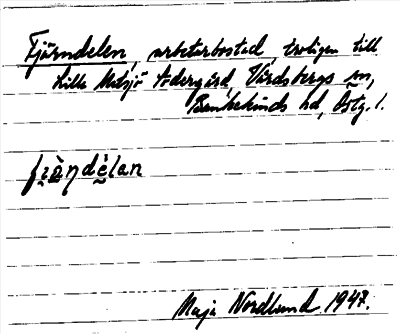 Fjärndelen, arbetarbostad, troligen till
Lilla Mutsjö Södergård, Vårdsbergs sn,
Bankekinds hd, Östg. l.
fjä̀ṇdélan
Maja Nordlund 1947.